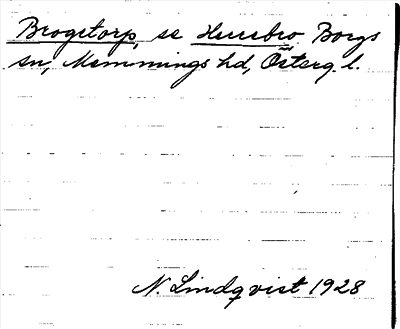 Brogetorp, se Herrebro Borgs
sn, Memmings hd, Österg. l.
N. Lindqvist 1928